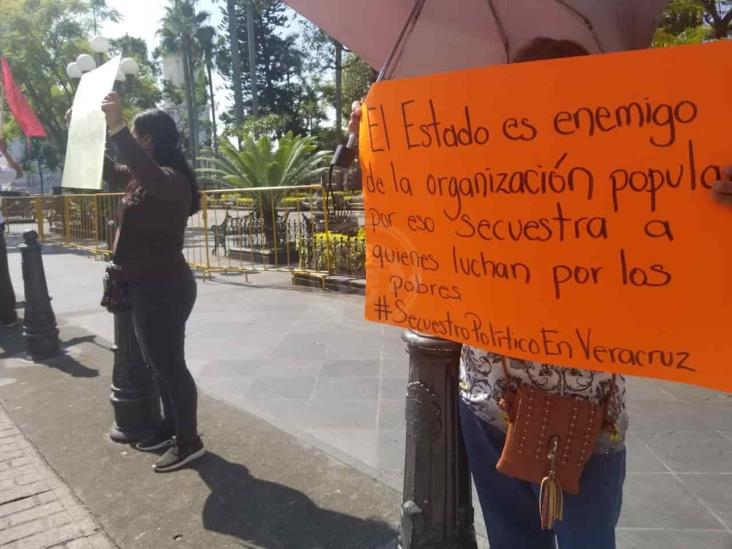 El Estado es enemigo
de la organización popula
por eso secuestra a
quienes luchan por los
pobres
#SecuestroPolíticoEnVeracruz